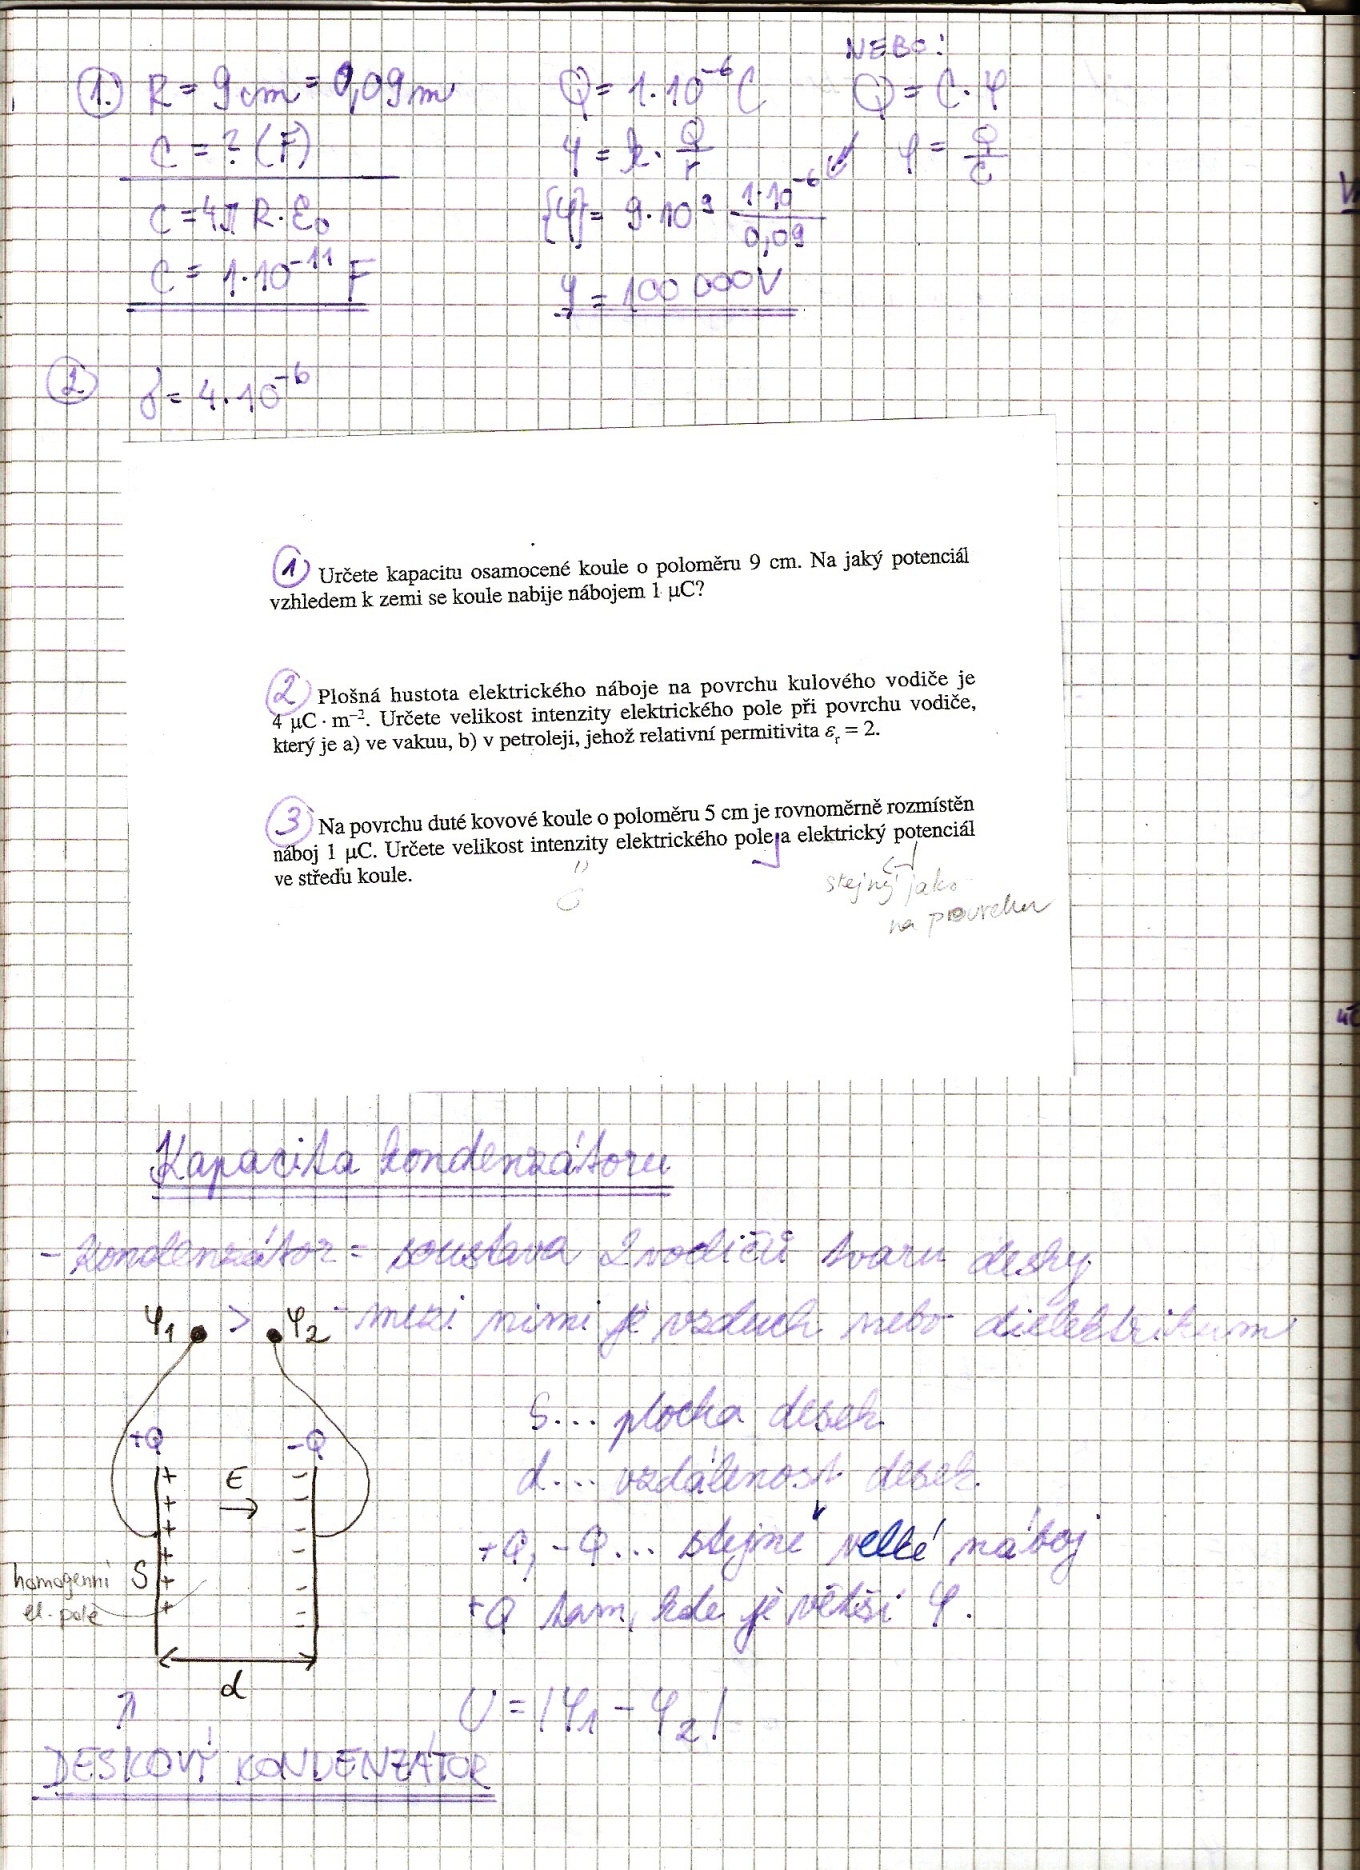 1. R = 9 cm = 0,09 m
C = ? (F)
C = 4π R · ε₀
C = 1·10⁻¹¹ F
Q = 1·10⁻⁶ C
φ = k · Q/r
{φ} = 9·10⁹ 1·10⁻⁶/0,09
φ = 100 000 V
NEBO:
Q = C · φ
φ = Q/C
2. δ = 4·10⁻⁶
1 Určete kapacitu osamocené koule o poloměru 9 cm. Na jaký potenciál
vzhledem k zemi se koule nabije nábojem 1 μC?
2 Plošná hustota elektrického náboje na povrchu kulového vodiče je
4 μC · m⁻². Určete velikost intenzity elektrického pole při povrchu vodiče,
který je a) ve vakuu, b) v petroleji, jehož relativní permitivita εᵣ = 2.
3 Na povrchu duté kovové koule o poloměru 5 cm je rovnoměrně rozmístěn
náboj 1 μC. Určete velikost intenzity elektrického pole a elektrický potenciál
ve středu koule.
stejný jako
na povrchu
Kapacita kondenzátoru
- kondenzátor = soustava 2 vodičů tvaru desky
φ₁ > φ₂ - mezi nimi je vzduch nebo dielektrikum
S... plocha desek
d... vzdálenost desek
+Q, -Q... stejně velké náboj
+Q tam, kde je větší φ.
U = |φ₁ - φ₂|
+Q -Q
E
homogenní
el. pole
S
d
DESKOVÝ KONDENZÁTOR